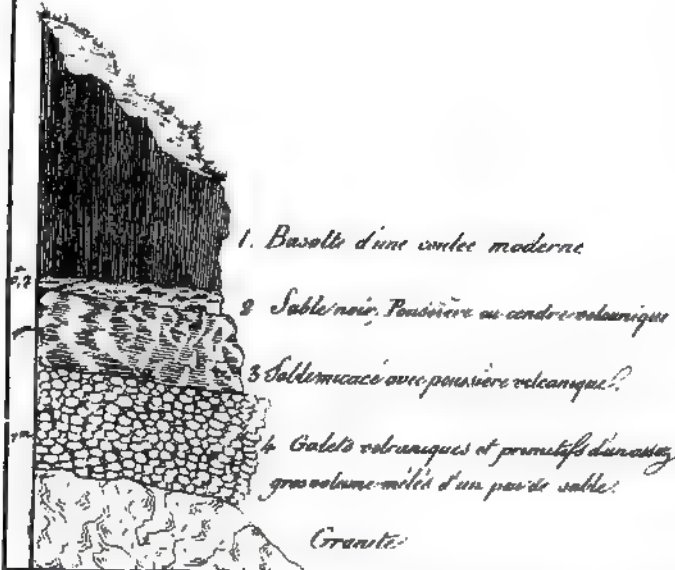 1. Basalte d'une coulée moderne
2 Sable noir, Poussière ou cendre volcanique
3 Sable micacé avec poussière volcanique.
4 Galets volcaniques et primitifs d'un assez
gros volume mêlés d'un peu de sable.
Granite